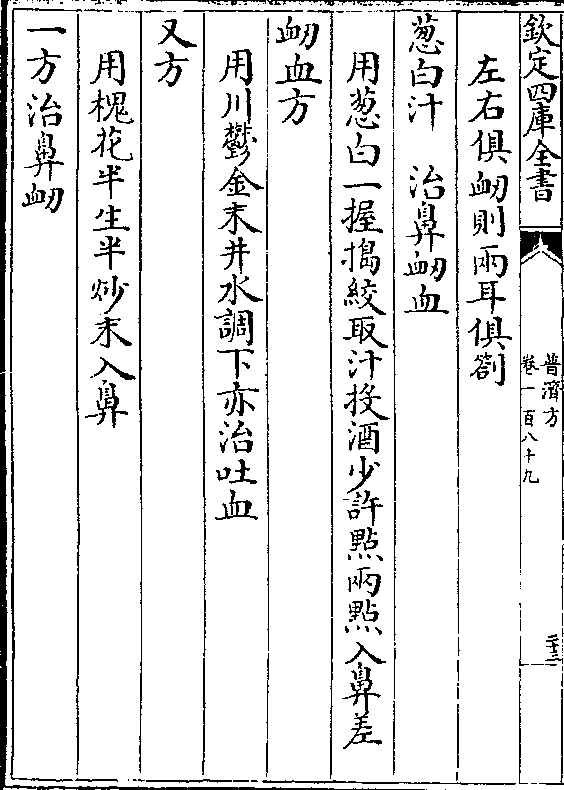 欽定四庫全書
普濟方
卷一百八十九
二十三
左右俱衂則兩耳俱劄
葱白汁　治鼻衂血
用葱白一握搗絞取汁投酒少許㸃兩㸃入鼻差
衂血方
用川鬱金末井水調下亦治吐血
又方
用槐花半生半炒末入鼻
一方治鼻衂